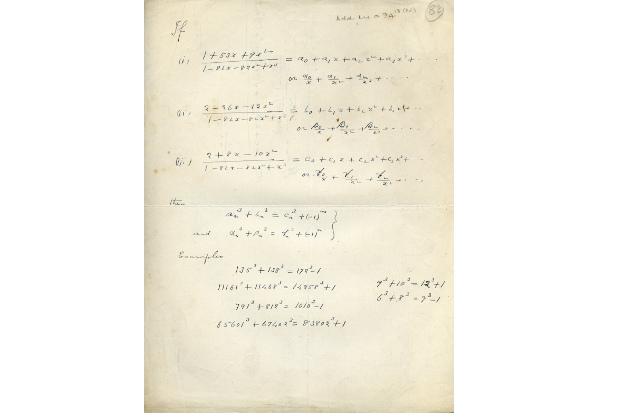 Add. MS a 94 15 (82)
If
(i) (1 + 53x + 9x²)/(1 − 82x − 82x² + x³) = a₀ + a₁x + a₂x² + a₃x³ + ···
or α₀/x + α₁/x² + α₂/x³ + ···
(ii) (2 − 26x − 12x²)/(1 − 82x − 82x² + x³) = b₀ + b₁x + b₂x² + b₃x³ + ···
or β₀/x + β₁/x² + β₂/x³ + ····
(iii) (2 + 8x − 10x²)/(1 − 82x − 82x² + x³) = c₀ + c₁x + c₂x² + c₃x³ + ··
or γ₀/x + γ₁/x² + γ₂/x³ + ···
then
aₙ³ + bₙ³ = cₙ³ + (−1)ⁿ
and αₙ³ + βₙ³ = γₙ³ + (−1)ⁿ
Examples
135³ + 138³ = 172³ − 1
11161³ + 11468³ = 14258³ + 1
9³ + 10³ = 12³ + 1
791³ + 812³ = 1010³ − 1
6³ + 8³ = 9³ − 1
65601³ + 67402³ = 83802³ + 1